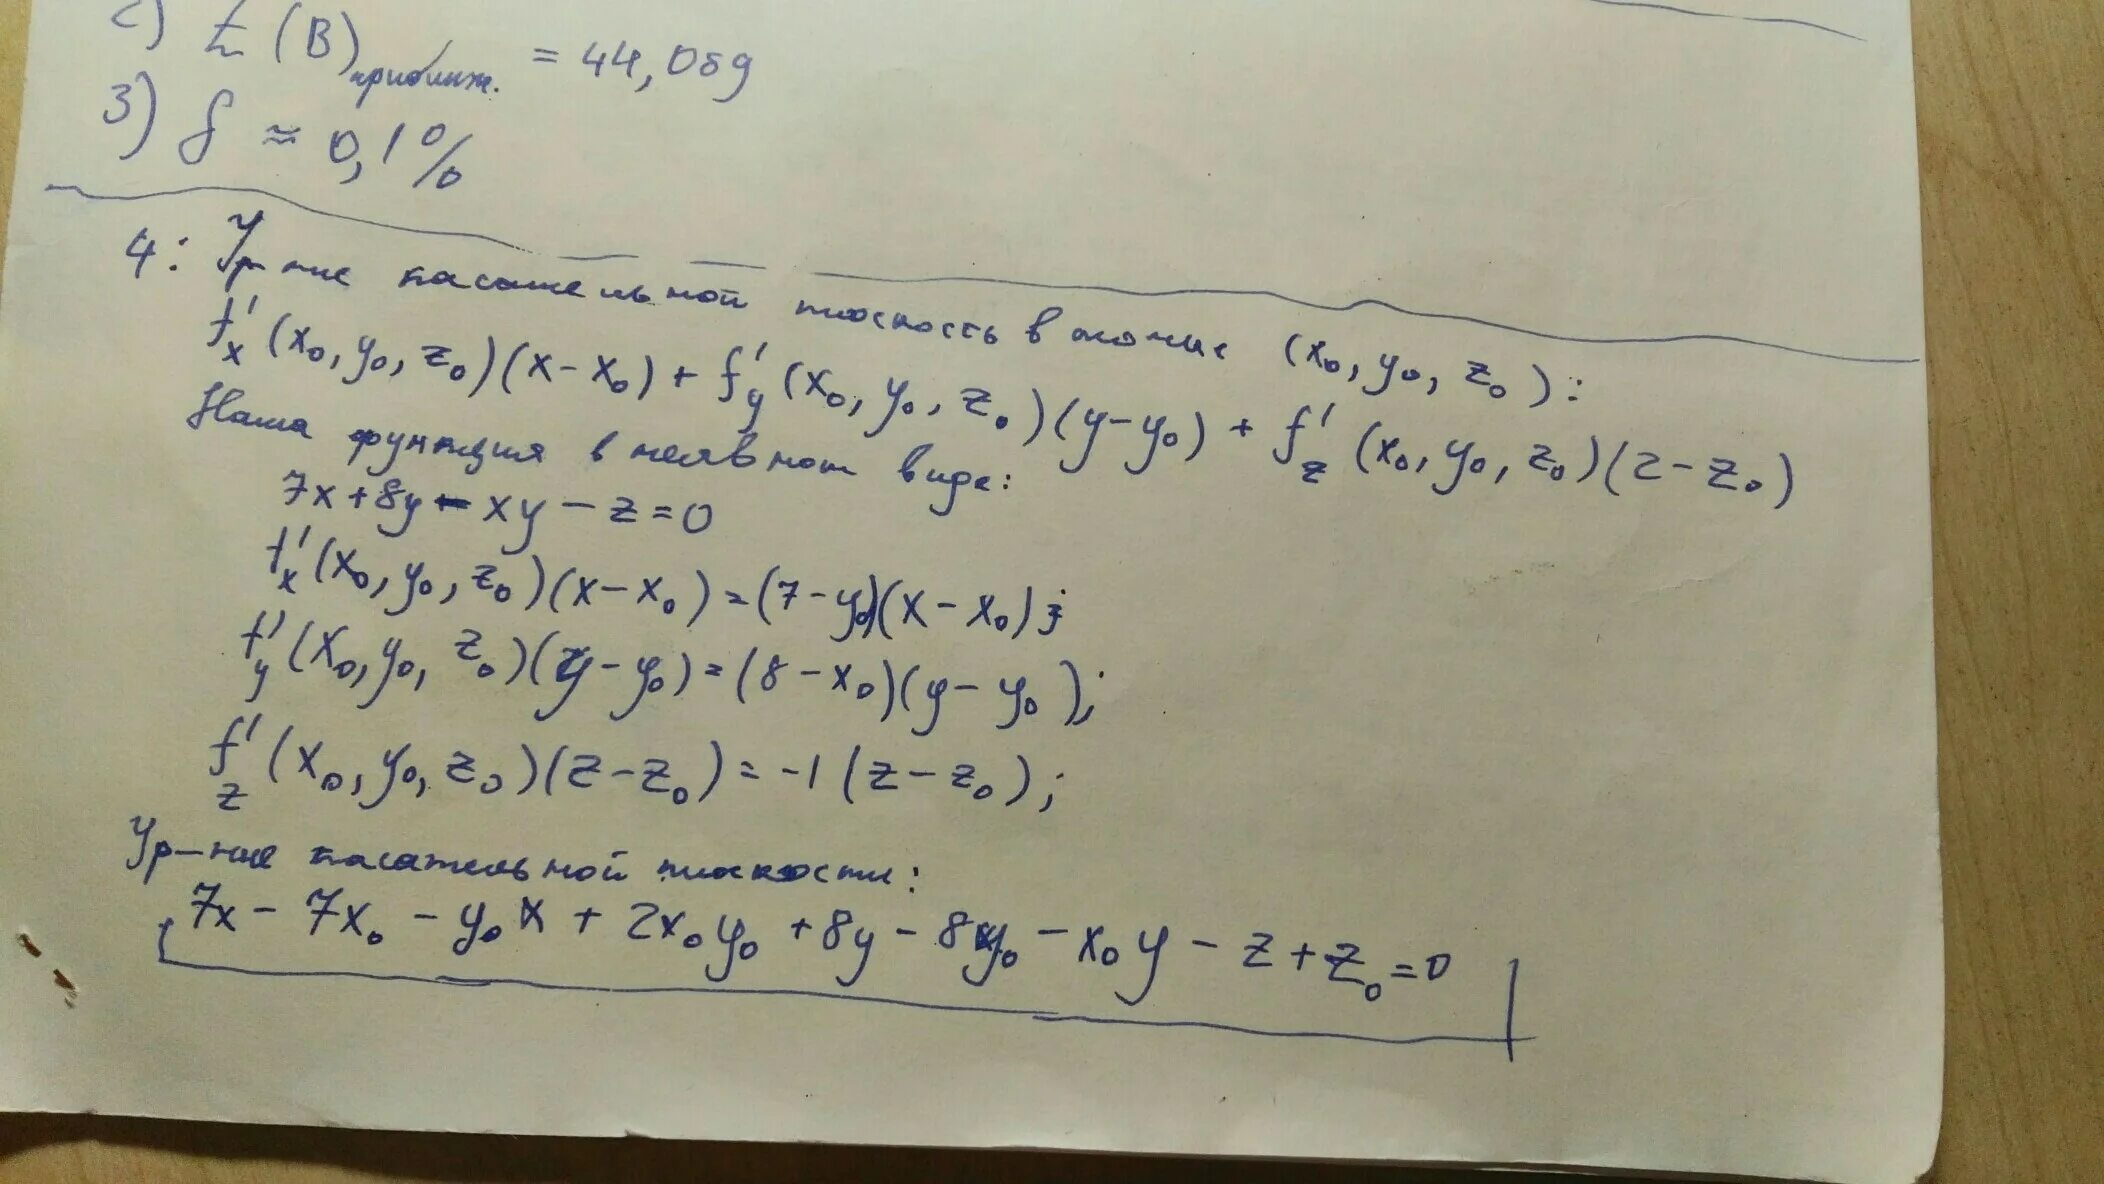 2) Z (B) приближ. = 44,059
3) δ ≈ 0,1%
4: Ур-ние касательной плоскость в точке (x₀, y₀, z₀):
f'ₓ(x₀, y₀, z₀)(x - x₀) + f'y(x₀, y₀, z₀)(y - y₀) + f'z(x₀, y₀, z₀)(z - z₀)
Наша функция в неявном виде:
7x + 8y - xy - z = 0
f'ₓ(x₀, y₀, z₀)(x - x₀) = (7 - y₀)(x - x₀);
f'y(x₀, y₀, z₀)(y - y₀) = (8 - x₀)(y - y₀);
f'z(x₀, y₀, z₀)(z - z₀) = -1(z - z₀);
Ур-ние касательной плоскости:
7x - 7x₀ - y₀x + 2x₀y₀ + 8y - 8y₀ - x₀y - z + z₀ = 0